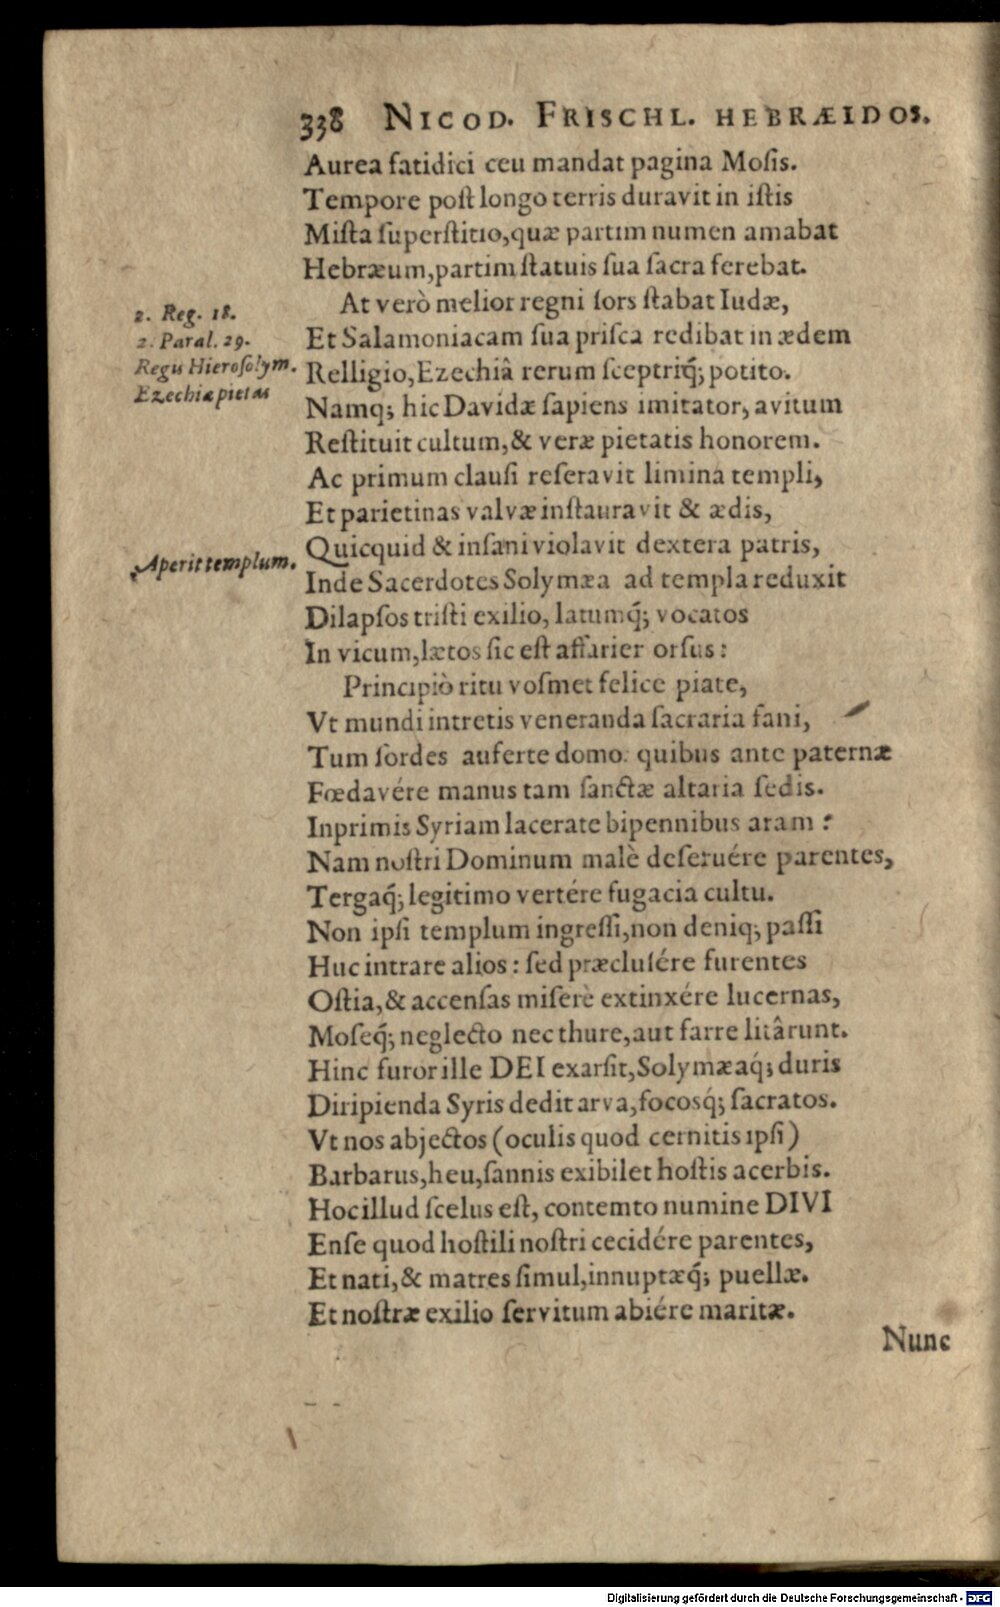 338 NICOD. FRISCHL. HEBRÆIDOS.
Aurea fatidici ceu mandat pagina Moſis.
Tempore poſt longo terris duravit in iſtis
Miſta ſuperſtitio, quæ partim numen amabat
Hebræum, partim ſtatuis ſua ſacra ferebat.
At verò melior regni ſors ſtabat Iudæ,
2. Reg. 18.
2. Paral. 29.
Regis Hieroſolym.
Ezechiæ pietas
Et Salamoniacam ſua priſca redibat in ædem
Relligio, Ezechiâ rerum ſceptriq́; potito.
Namq; hic Davidæ ſapiens imitator, avitum
Reſtituit cultum, & veræ pietatis honorem.
Ac primum clauſi reſeravit limina templi,
Et parietinas valvæ inſtauravit & ædis,
Quicquid & inſani violavit dextera patris,
Aperit templum.
Inde Sacerdotes Solymæa ad templa reduxit
Dilapſos triſti exilio, latumq́; vocatos
In vicum, lætos ſic eſt affarier orſus:
Principiò ritu voſmet felice piate,
Vt mundi intretis veneranda ſacraria fani,
Tum ſordes auferte domo: quibus ante paternæ
Fœdavére manus tam ſanctæ altaria ſedis.
Inprimis Syriam lacerate bipennibus aram:
Nam noſtri Dominum malè deſeruére parentes,
Tergaq́; legitimo vertére fugacia cultu.
Non ipſi templum ingreſſi, non deniq; paſſi
Huc intrare alios: ſed præcluſére furentes
Oſtia, & accenſas miſerè extinxére lucernas,
Moſeq́; neglecto nec thure, aut farre litârunt.
Hinc furor ille DEI exarſit, Solymæaq́; duris
Diripienda Syris dedit arva, focosq́; ſacratos.
Vt nos abjectos (oculis quod cernitis ipſi)
Barbarus, heu, ſannis exibilet hoſtis acerbis.
Hoc illud ſcelus eſt, contemto numine DIVI
Enſe quod hoſtili noſtri cecidére parentes,
Et nati, & matres ſimul, innuptæq́; puellæ.
Et noſtræ exilio ſervitum abiére maritæ.
Nunc
Digitalisierung gefördert durch die Deutsche Forschungsgemeinschaft - DFG